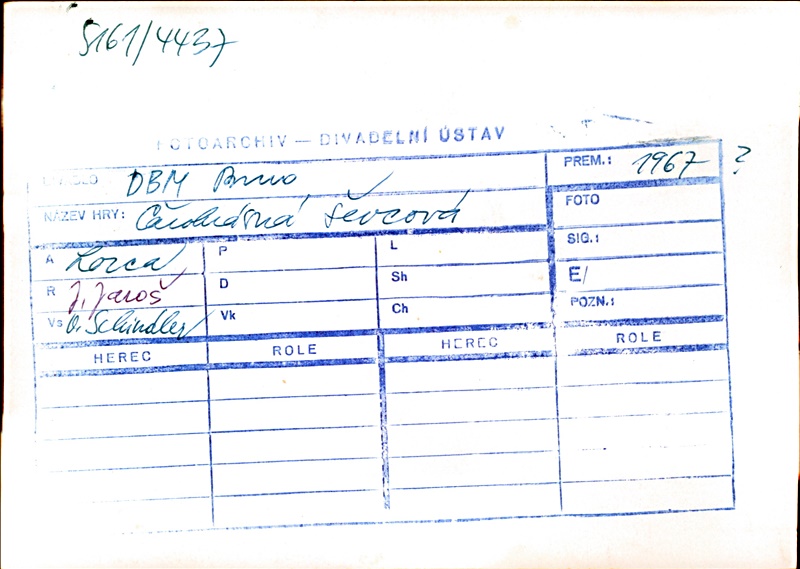 S161/4437
FOTOARCHIV — DIVADELNÍ ÚSTAV
DIVADLO DBM Brno PREM.: 1967 ?
NÁZEV HRY: Čarokrásná ševcová FOTO
A Lorca P L SIG.:
R J. Jaroš D Sh E/
Vs O. Schindler Vk Ch POZN.:
HEREC ROLE HEREC ROLE